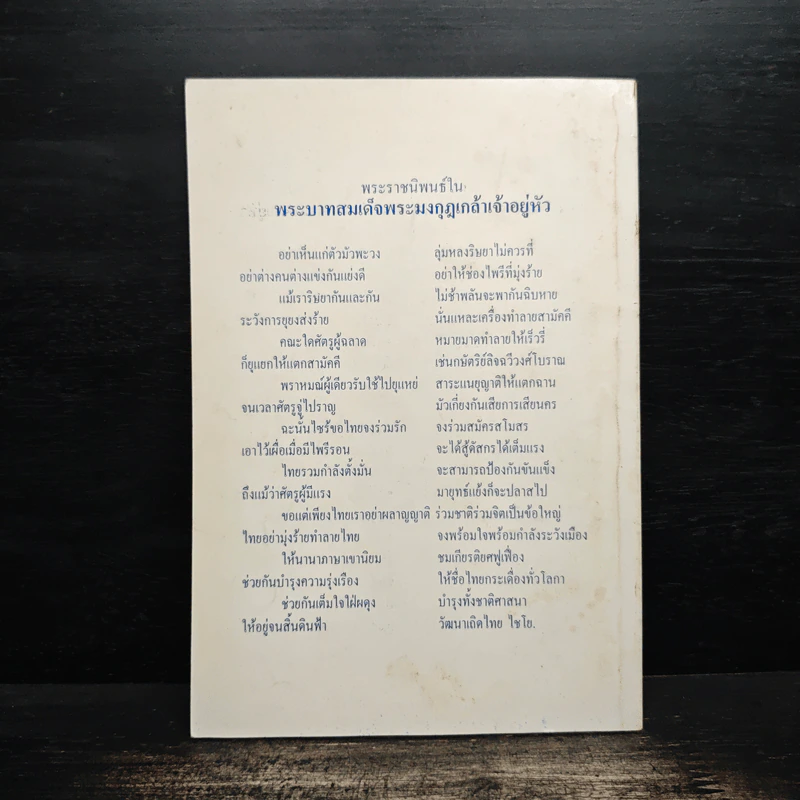 พระราชนิพนธ์ใน
พระบาทสมเด็จพระมงกุฎเกล้าเจ้าอยู่หัว
อย่าเห็นแก่ตัวมัวพะวง ลุ่มหลงริษยาไม่ควรที่
อย่าต่างคนต่างแข่งกันแย่งดี อย่าให้ช่องไพรีที่มุ่งร้าย
แม้เราริษยากันและกัน ไม่ช้าพลันจะพากันฉิบหาย
ระวังการยุยงส่งร้าย นั่นแหละเครื่องทำลายสามัคคี
คณะใดศัตรูผู้ฉลาด หมายมาดทำลายให้เร็วรี่
ก็ยุแยกให้แตกสามัคคี เช่นกษัตริย์ลิจฉวีวงศ์โบราณ
พราหมณ์ผู้เดียวรับใช้ไปยุแหย่ สาระแนยุญาติให้แตกฉาน
จนเวลาศัตรูจู่ไปราญ มัวเกี่ยงกันเสียการเสียนคร
ฉะนั้นไซร้ขอไทยจงร่วมรัก จงร่วมสมัครสโมสร
เอาไว้เผื่อเมื่อมีไพรีรอน จะได้สู้ดัสกรได้เต็มแรง
ไทยรวมกำลังตั้งมั่น จะสามารถป้องกันขันแข็ง
ถึงแม้ว่าศัตรูผู้มีแรง มายุทธ์แย้งก็จะปลาสไป
ขอแต่เพียงไทยเราอย่าผลาญญาติ ร่วมชาติร่วมจิตเป็นข้อใหญ่
ไทยอย่ามุ่งร้ายทำลายไทย จงพร้อมใจพร้อมกำลังระวังเมือง
ให้นานาภาษาเขานิยม ชมเกียรติยศฟูเฟื่อง
ช่วยกันบำรุงความรุ่งเรือง ให้ชื่อไทยกระเดื่องทั่วโลกา
ช่วยกันเต็มใจใฝ่ผดุง บำรุงทั้งชาติศาสนา
ให้อยู่จนสิ้นดินฟ้า วัฒนาเถิดไทย ไชโย.